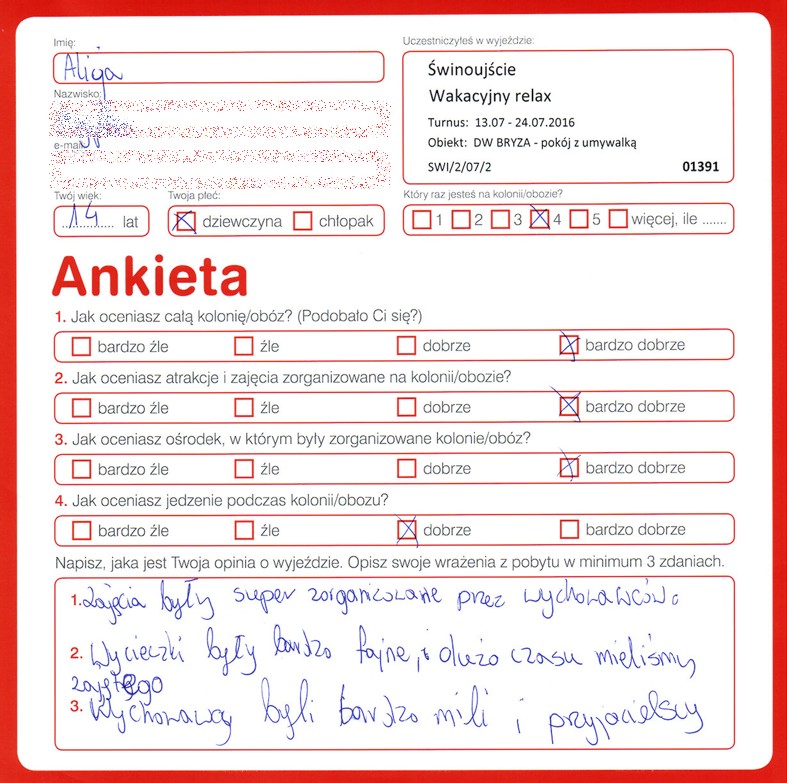 Imię:
Alicja
Nazwisko:
e-mail:
Uczestniczyłeś w wyjeździe:
Świnoujście
Wakacyjny relax
Turnus: 13.07 - 24.07.2016
Obiekt: DW BRYZA - pokój z umywalką
SWI/2/07/2 01391
Twój wiek:
14 lat
Twoja płeć:
dziewczyna chłopak
Który raz jesteś na kolonii/obozie?
1 2 3 4 5 więcej, ile .......
Ankieta
1. Jak oceniasz całą kolonię/obóz? (Podobało Ci się?)
bardzo źle źle dobrze bardzo dobrze
2. Jak oceniasz atrakcje i zajęcia zorganizowane na kolonii/obozie?
bardzo źle źle dobrze bardzo dobrze
3. Jak oceniasz ośrodek, w którym były zorganizowane kolonie/obóz?
bardzo źle źle dobrze bardzo dobrze
4. Jak oceniasz jedzenie podczas kolonii/obozu?
bardzo źle źle dobrze bardzo dobrze
Napisz, jaka jest Twoja opinia o wyjeździe. Opisz swoje wrażenia z pobytu w minimum 3 zdaniach.
1. Zajęcia były super zorganizowane przez wychowawców.
2. Wycieczki były bardzo fajne, i dużo czasu mieliśmy
zajętego
3. Wychowawcy byli bardzo mili i przyjacielscy